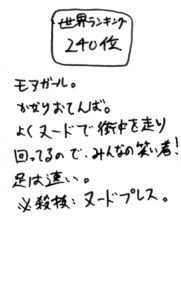 世界ランキング
240位
モアガール。
かなりおてんば。
よくヌードで街中を走り
回ってるので、みんなの笑い者!
足は速い。
※殺技: ヌードプレス。